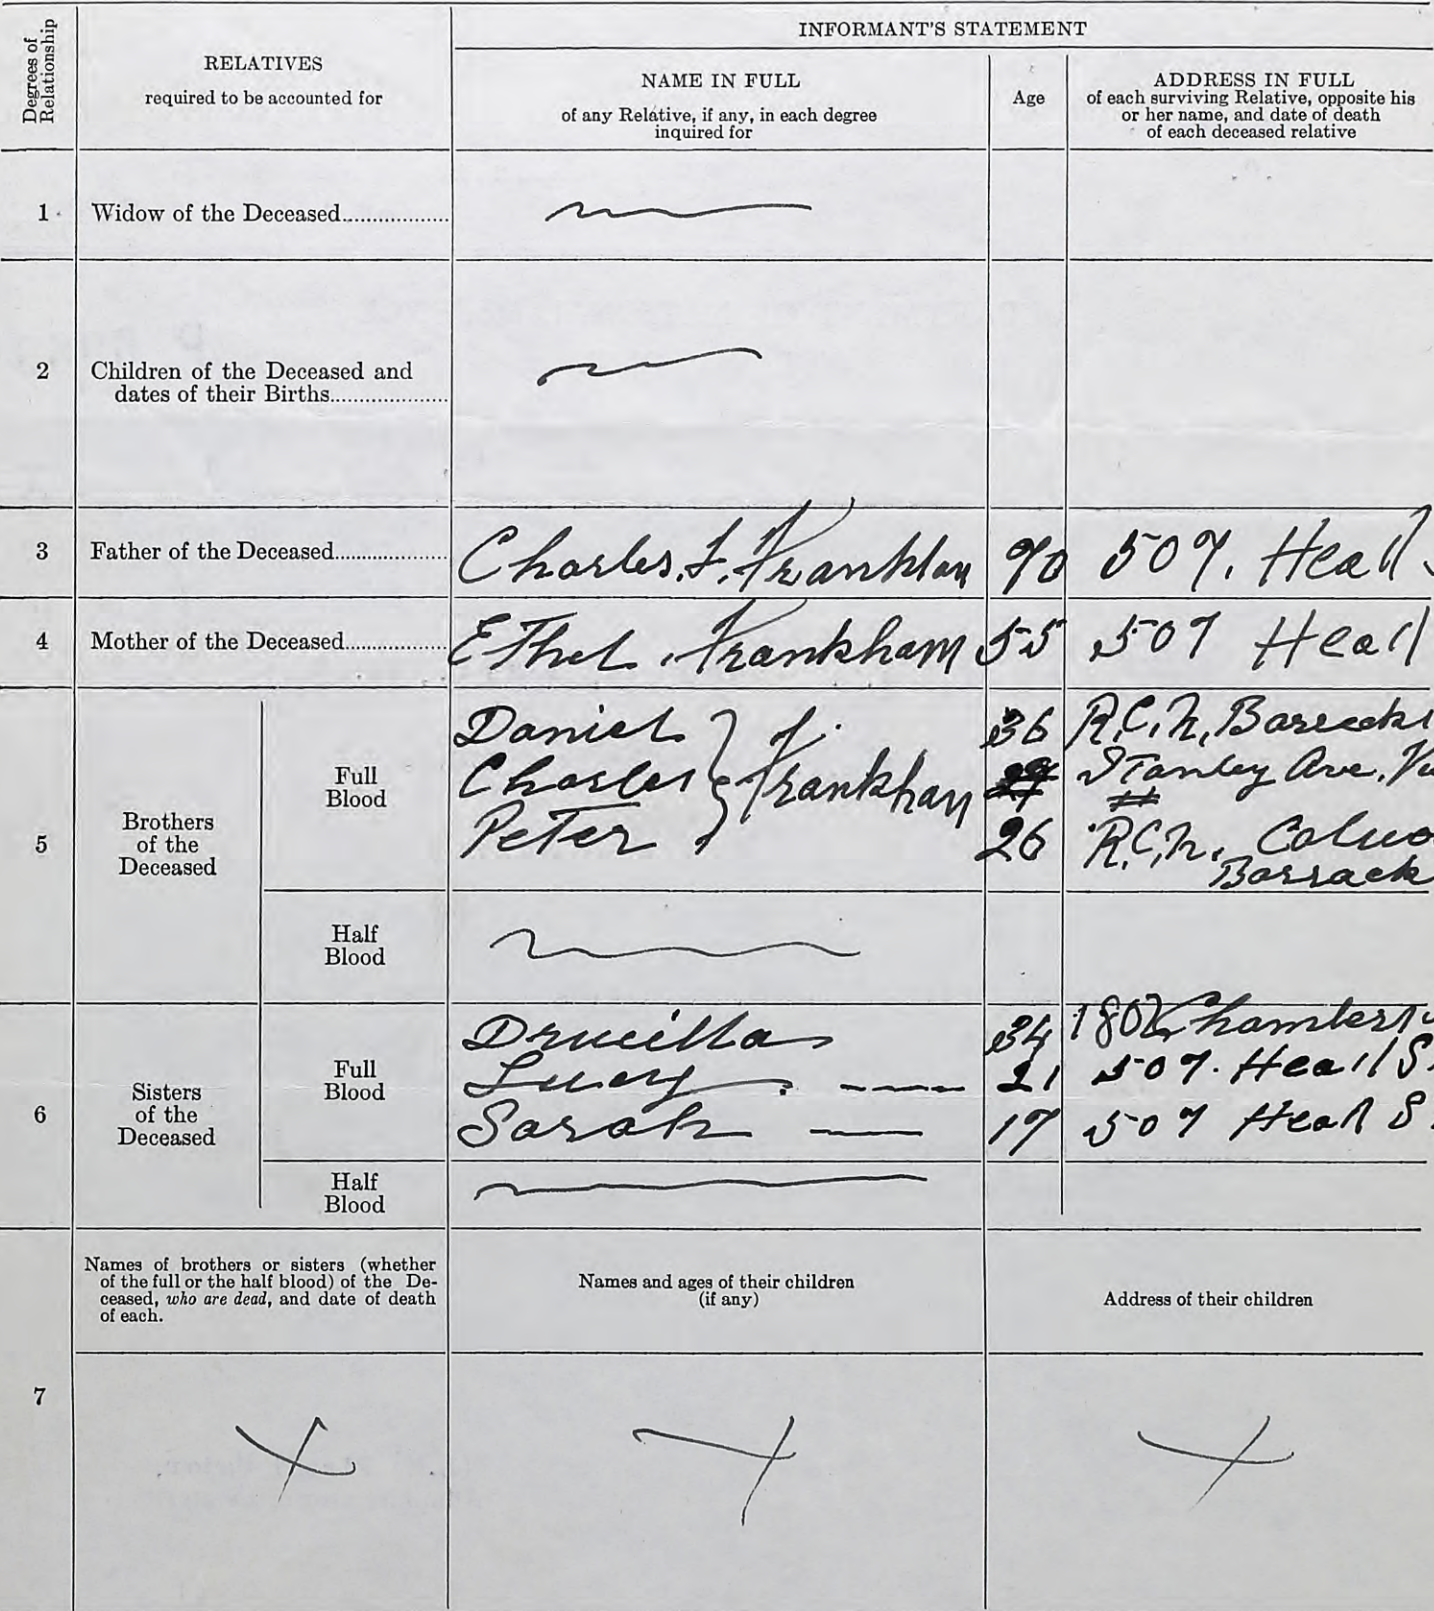 Degrees of
Relationship
RELATIVES
required to be accounted for
INFORMANT'S STATEMENT
NAME IN FULL
of any Relative, if any, in each degree
inquired for
Age
ADDRESS IN FULL
of each surviving Relative, opposite his
or her name, and date of death
of each deceased relative
1 Widow of the Deceased
2 Children of the Deceased and
dates of their Births
3 Father of the Deceased Charles. F. 70 507. Heall
4 Mother of the Deceased Ethel. Frankham 55 507 Heall
5
Brothers
of the
Deceased
Full
Blood
Daniel } F. 36 R.C.N. Barracks
Charles } Frankham Stanley Ave.
Peter } 26 R.C.N.
Barrack
Half
Blood
6
Sisters
of the
Deceased
Full
Blood
Drucilla 34 Chambers
Lucy 21 507. Heall S
Sarah 17 507 Heall S
Half
Blood
7
Names of brothers or sisters (whether
of the full or the half blood) of the De-
ceased, who are dead, and date of death
of each.
Names and ages of their children
(if any)
Address of their children